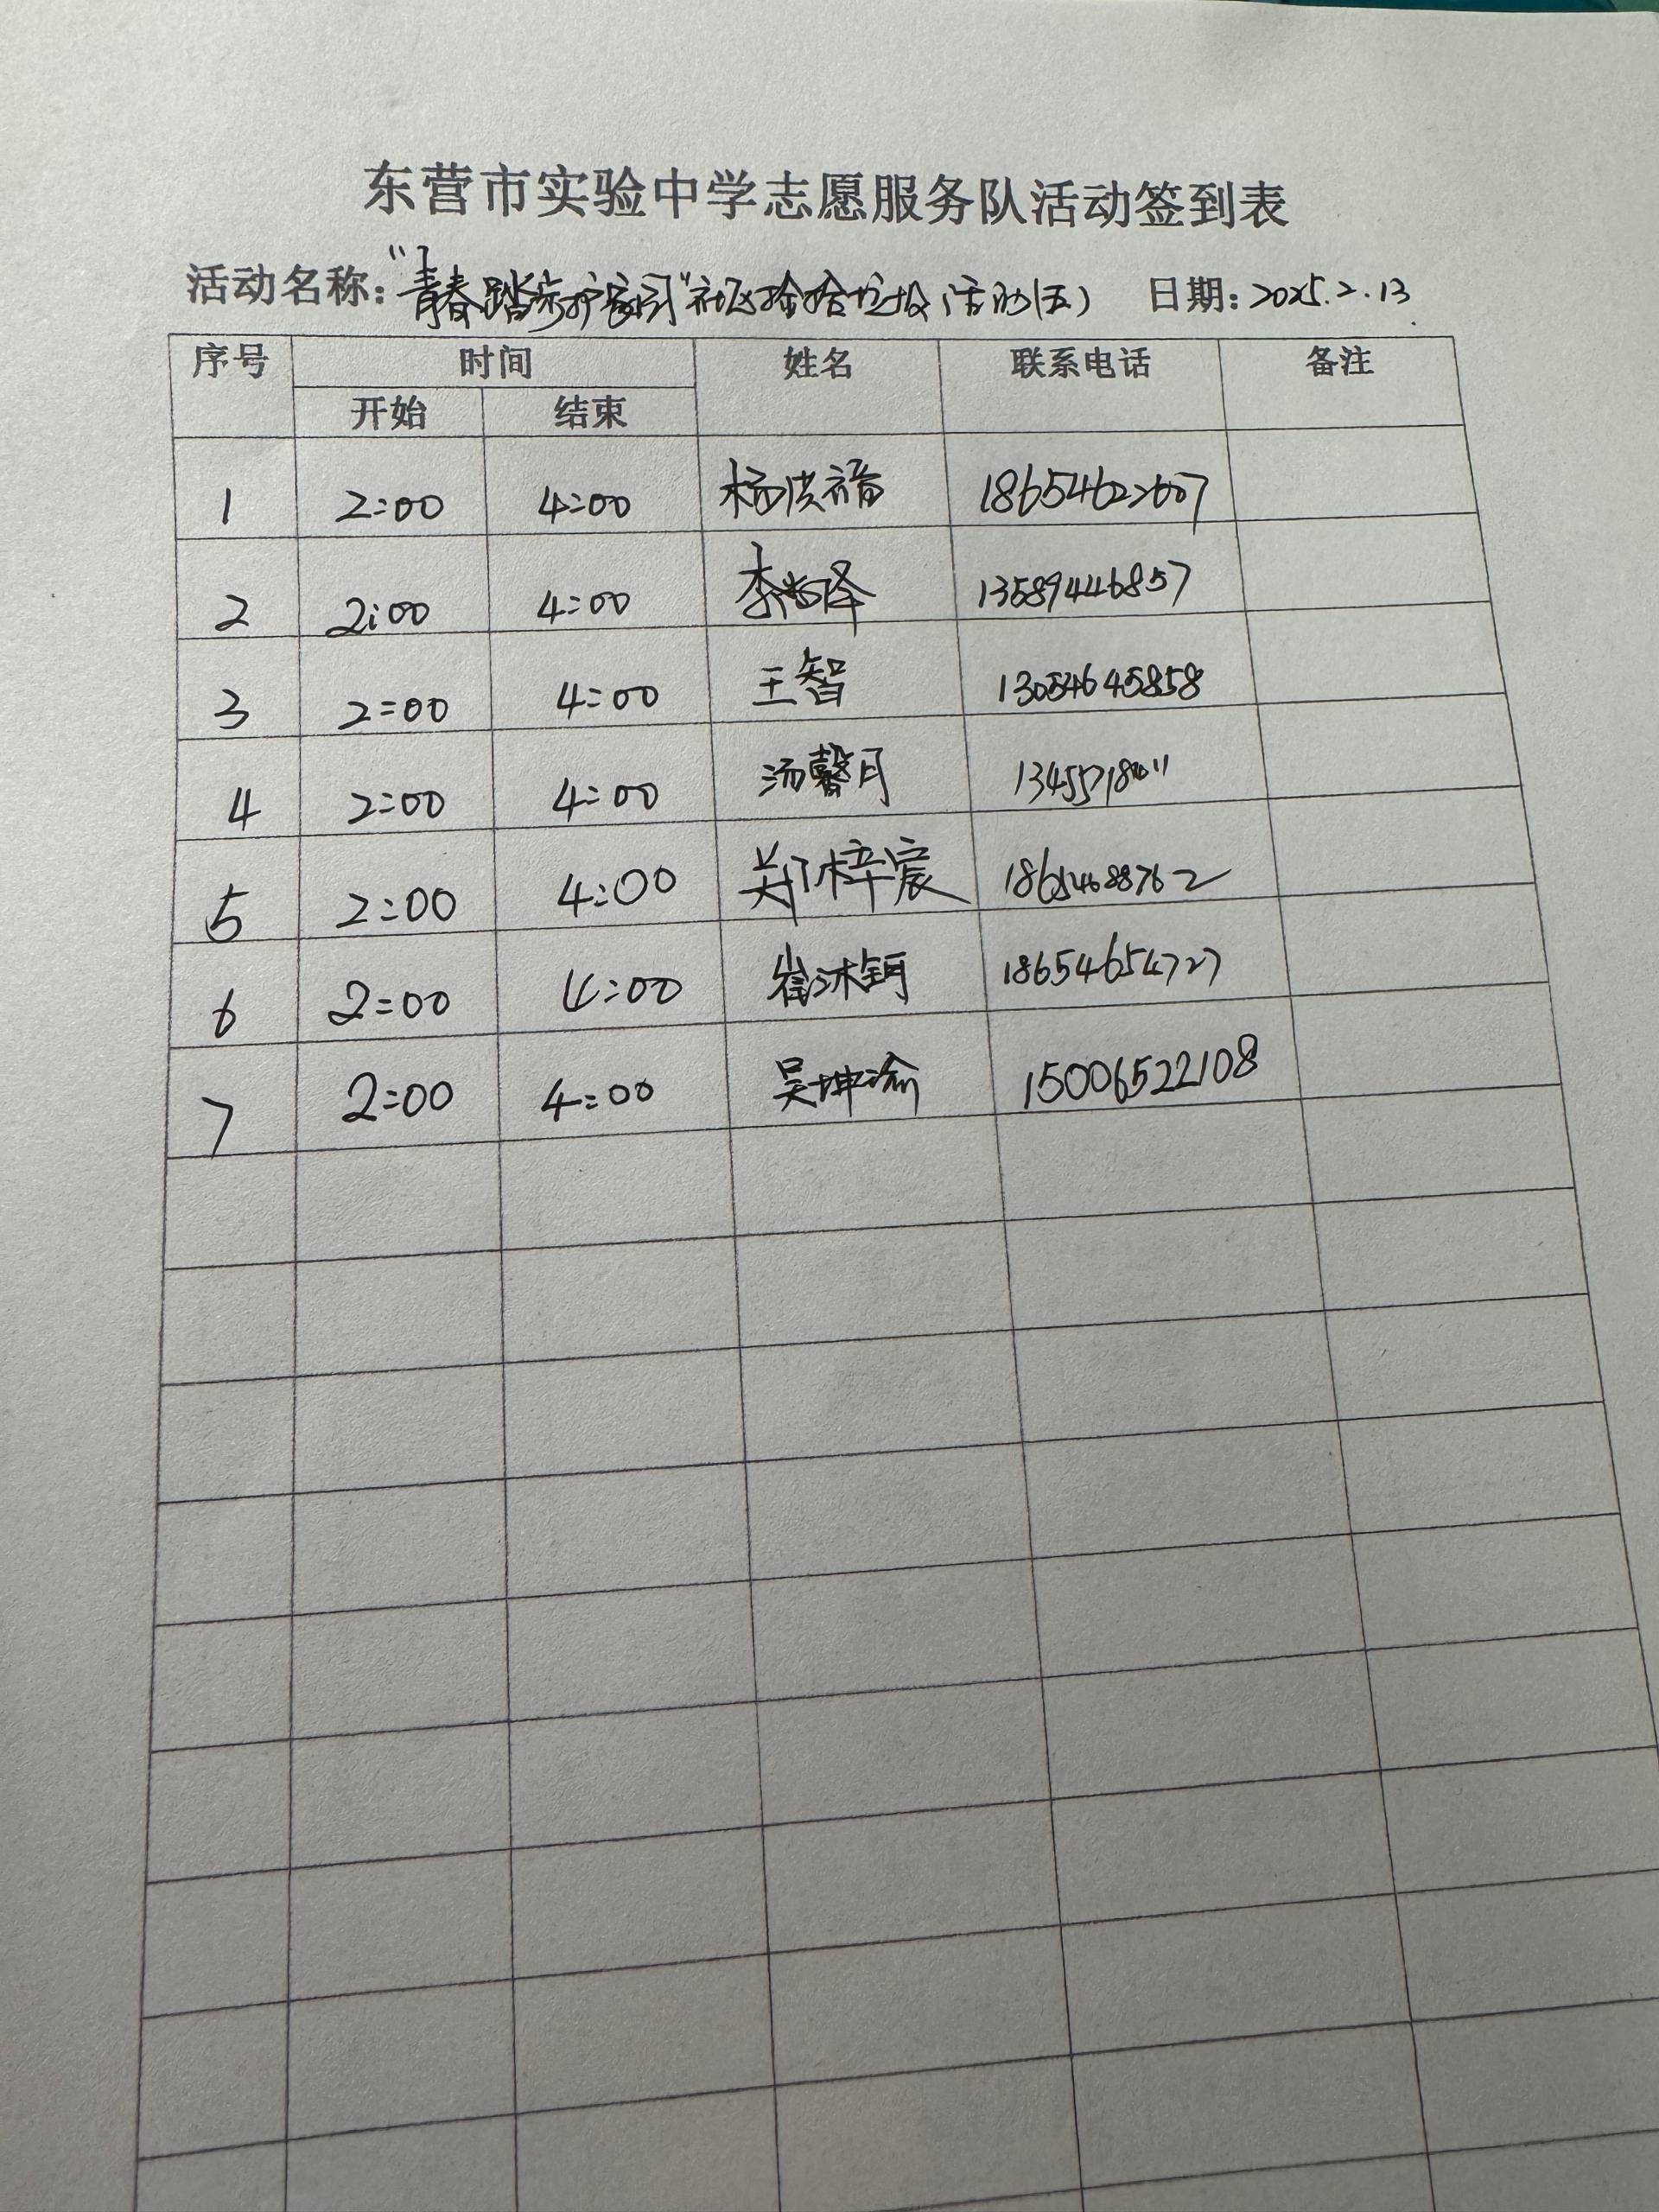 东营市实验中学志愿服务队活动签到表
活动名称:"青春踏步护家园"社区捡拾垃圾活动(五) 日期:2025.2.13
序号 时间 姓名 联系电话 备注
开始 结束
1 2:00 4:00 杨洪 18654622607
2 2:00 4:00 李 泽 13589446857
3 2:00 4:00 王智 13054645858
4 2:00 4:00 汤馨月
5 2:00 4:00 郑梓宸 18654688762
6 2:00 4:00 崔沐钶 18654654727
7 2:00 4:00 吴坤渝 15006522108